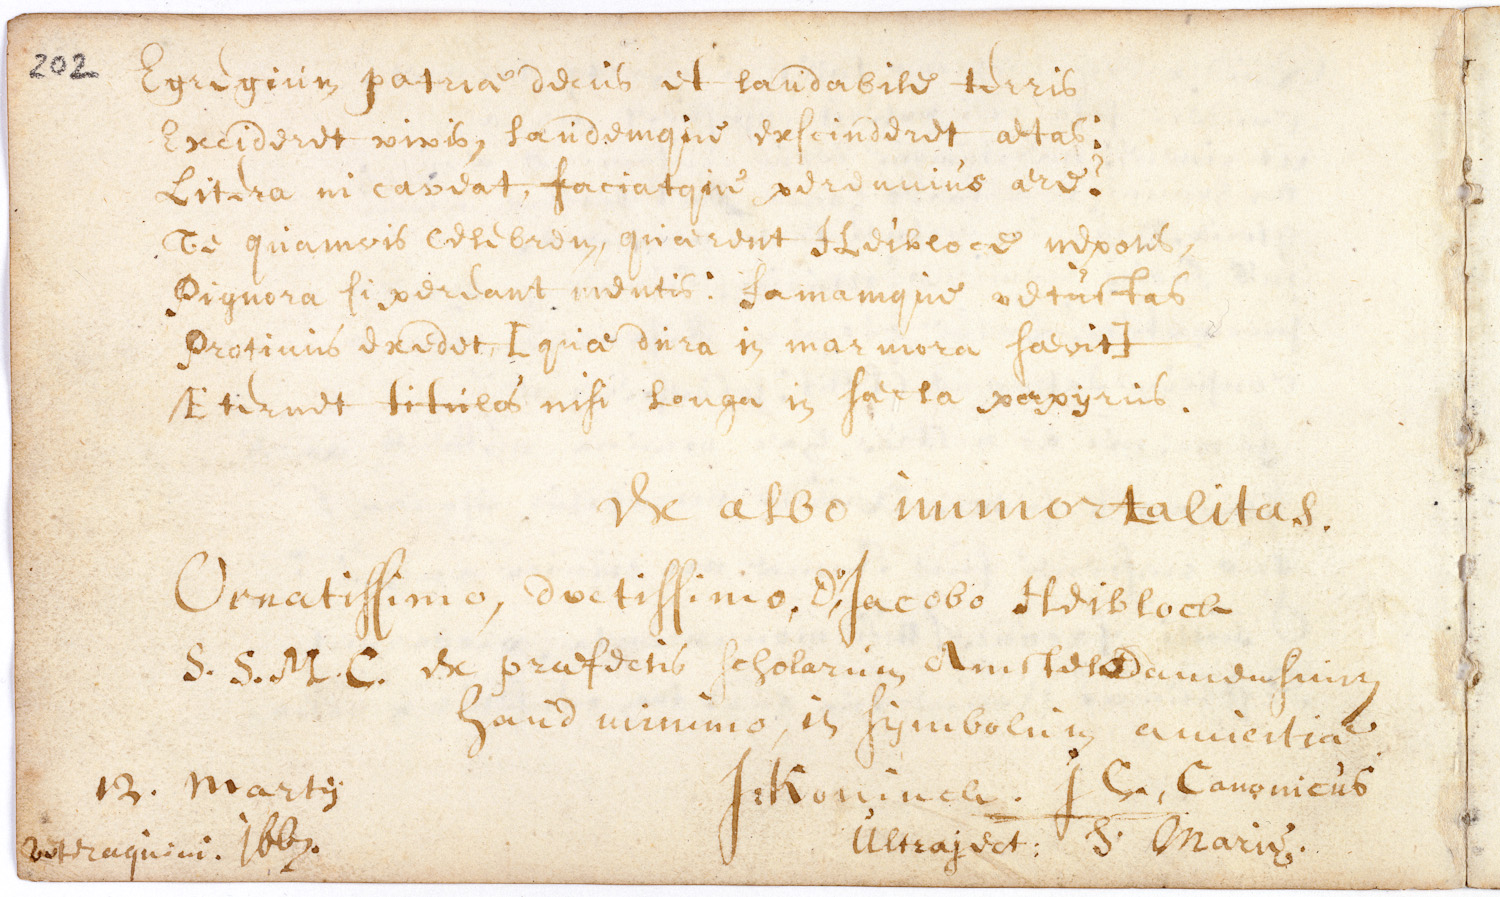 202
Egregium patriæ decus et laudabile terris
Excideret vivis, laudemque exscinderet ætas:
Litera ni caveat, faciatque perennius ære?
Te quamvis celebrem, quærent Heiblocê nepotes,
Pignora si perdant mentis: famamque vetustas
Protinus exedet, [quæ dura in marmora sævit]
Æternet titulos nisi longa in sæcla papyrus.
Ex albo immortalitas.
Ornatissimo, doctissimo, D.o Jacobo Heiblock
S. S. M. C. ex præfectis scholarum Amsteledamensium
haud minimo, in symbolum amicitiæ
J: Koninck. J C., Canonicus
12. Martij
Ultraject: S. Mariæ.
166